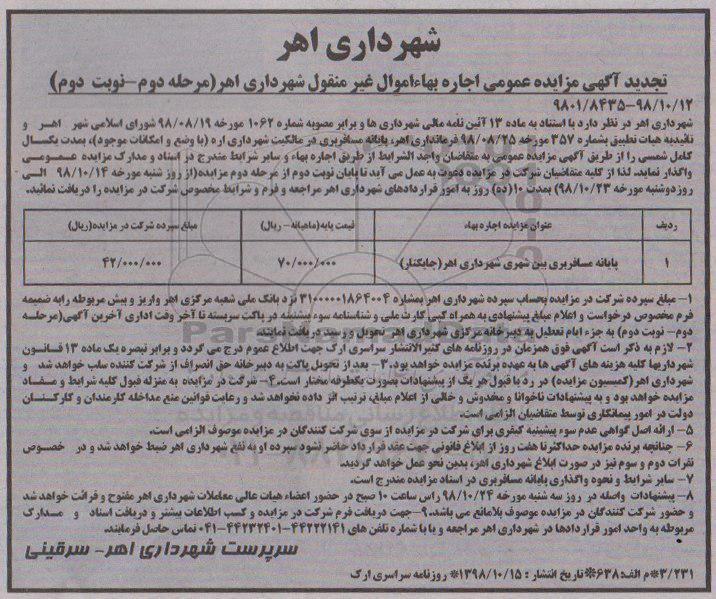 شهرداری اهر
تجدید آگهی مزایده عمومی اجاره بهاءاموال غیر منقول شهرداری اهر(مرحله دوم-نوبت دوم)
۹۸۰۱/۸۴۳۵-۹۸/۱۰/۱۲
شهرداری اهر در نظر دارد با استناد به ماده ۱۳ آئین نامه مالی شهرداری ها و برابر مصوبه شماره ۱۰۶۲ مورخه ۹۸/۰۸/۱۹ شورای اسلامی شهر اهر و
تائیدیه هیات تطبیق بشماره ۳۵۷ مورخه ۹۸/۰۸/۲۵ فرمانداری اهر، پایانه مسافربری در مالکیت شهرداری اره (با وضع و امکانات موجود)، بمدت یکسال
کامل شمسی را از طریق آگهی مزایده عمومی به متقاضیان واجد الشرایط از طریق اجاره بهاء و سایر شرایط مندرج در اسناد و مدارک مزایده عمومی
واگذار نماید. لذا از کلیه متقاضیان شرکت در مزایده دعوت به عمل می آید تا پایان نوبت دوم از مرحله دوم مزایده(از روز شنبه مورخه ۹۸/۱۰/۱۴ الی
روز دوشنبه مورخه ۹۸/۱۰/۲۳) بمدت ۱۰(ده) روز به امور قراردادهای شهرداری اهر مراجعه و فرم و شرایط مخصوص شرکت در مزایده را دریافت نمائید.
ردیف عنوان مزایده اجاره بهاء قیمت پایه(ماهیانه-ریال) مبلغ سپرده شرکت در مزایده(ریال)
۱ پایانه مسافربری بین شهری شهرداری اهر(چایکنار) ۷۰/۰۰۰/۰۰۰ ۴۲/۰۰۰/۰۰۰
۱- مبلغ سپرده شرکت در مزایده بحساب سپرده شهرداری اهر بشماره ۳۱۰۰۰۰۱۸۶۴۰۰۴ نزد بانک ملی شعبه مرکزی اهر واریز و فیش مربوطه رابه ضمیمه
فرم مخصوص درخواست و اعلام مبلغ پیشنهادی به همراه کپی کارت ملی و شناسنامه سوء پیشینه در پاکت سربسته تا آخر وقت اداری آخرین آگهی(مرحله
دوم- نوبت دوم) به جزء ایام تعطیل به دبیرخانه مرکزی شهرداری اهر تحویل و رسید دریافت نمایند.
۲- لازم به ذکر است آگهی فوق همزمان در روزنامه های کثیرالانتشار سراسری ارک جهت اطلاع عموم درج می گردد و برابر تبصره یک ماده ۱۳ قانون
شهرداریها کلیه هزینه های آگهی ها به عهده برنده مزایده خواهد بود.۳- بعد از تحویل پاکت به دبیرخانه حق انصراف از شرکت کننده سلب خواهد شد و
شهرداری اهر (کمیسیون مزایده) در رد یا قبول هر یک از پیشنهادات بصورت یکطرفه مختار است.۴- شرکت در مزایده به منزله قبول کلیه شرایط و مفاد
مزایده خواهد بود و به پیشنهادات ناخوانا و مخدوش و خالی از اعلام مبلغ، ترتیب اثر داده نخواهد شد و رعایت قوانین منع مداخله کارمندان و کارکنان
دولت در امور پیمانگاری توسط متقاضیان الزامی است.
۵- ارائه اصل گواهی عدم سوء پیشینه کیفری برای شرکت در مزایده از سوی شرکت کنندگان در مزایده موصوف الزامی است.
۶- چنانچه برنده مزایده حداکثرتا هفت روز از ابلاغ قانونی جهت عقد قرارداد حاضر نشود سپرده او به نفع شهرداری اهر ضبط خواهد شد و در خصوص
نفرات دوم و سوم نیز در صورت ابلاغ شهرداری اهر، بدین نحو عمل خواهد گردید.
۷- سایر شرایط و نحوه واگذاری پایانه مسافربری در اسناد مزایده مندرج است.
۸- پیشنهادات واصله در روز سه شنبه مورخه ۹۸/۱۰/۲۴ راس ساعت ۱۰ صبح در حضور اعضاء هیات عالی معاملات شهرداری اهر مفتوح و قرائت خواهد شد
و حضور شرکت کنندگان در مزایده موصوف بلامانع می باشد.۹-جهت دریافت فرم شرکت در مزایده و کسب اطلاعات بیشتر و دریافت اسناد و مدارک
مربوطه به واحد امور قراردادها در شهرداری اهر مراجعه و یا با شماره تلفن های ۴۴۲۲۲۱۴۱-۴۴۲۳۲۴۰۱-۰۴۱ تماس حاصل فرمایند.
سرپرست شهرداری اهر- سرقینی
۳/۲۳۱*م الف:۶۳۸*تاریخ انتشار : ۱۳۹۸/۱۰/۱۵* روزنامه سراسری ارک